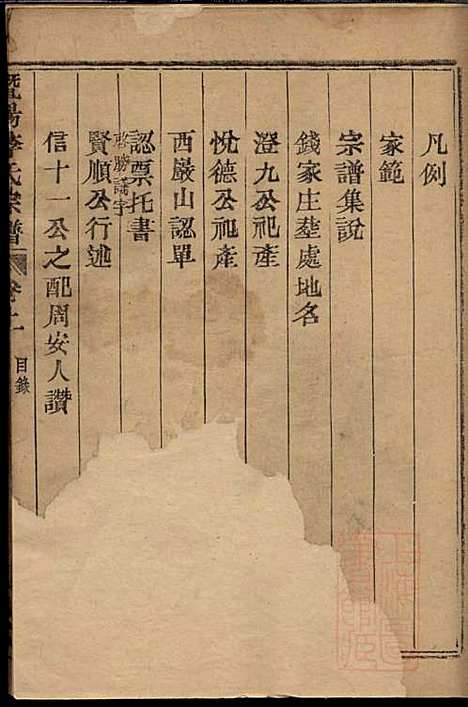 凡例
家範
宗譜集說
錢家庄塋處地名
澄九公祀產
悅德公祀產
西巖山認單
認票托書
賢順公行述
信十一公之配周安人讚
暨陽 氏宗譜
卷二
目錄